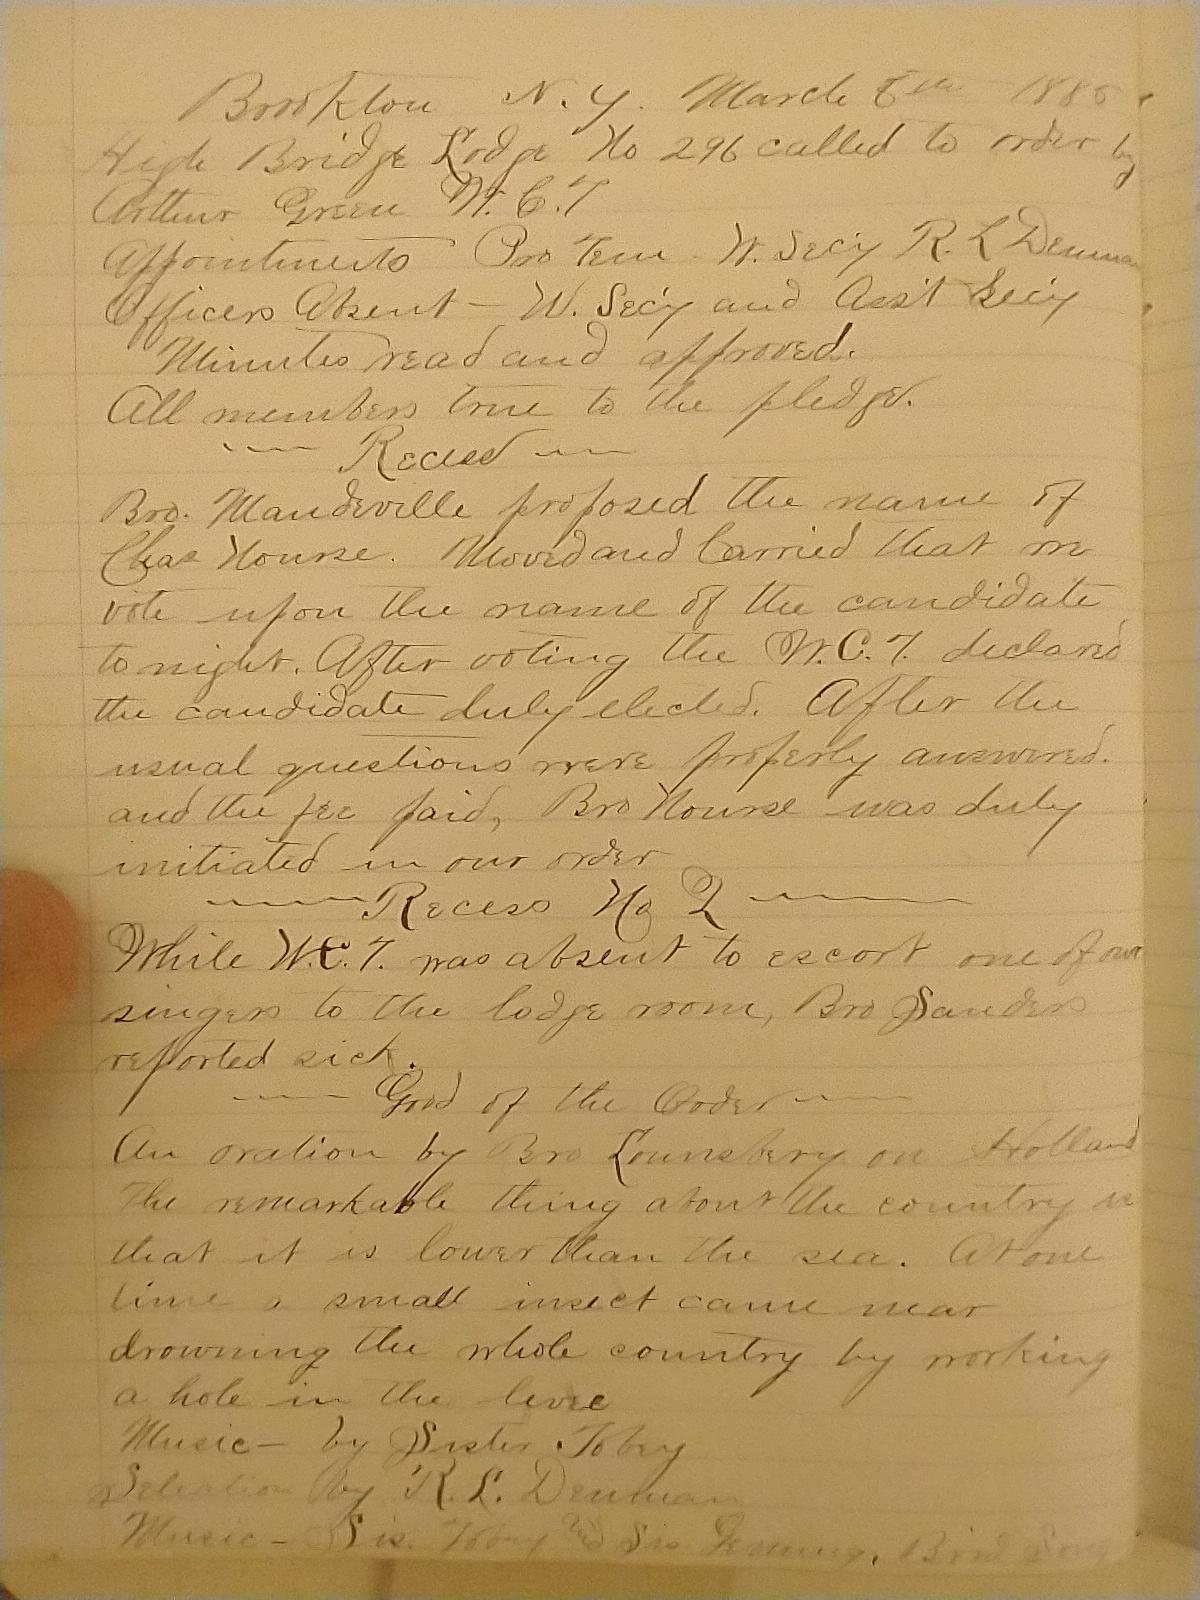 Brookton N.Y. March 8th 1886
High Bridge Lodge No 296 called to order by
Arthur Green W.C.T
Appointments Pro Tem - W. Sec'y R. L Denman
Officers Absent - W. Sec'y and Ass't Sec'y
Minutes read and approved.
All members true to the pledge.
Recess
Bro. Mandeville proposed the name of
Chas Nourse. Moved and Carried that we
vote upon the name of the candidate
to night. After voting the W.C.T. declared
the candidate duly elected. After the
usual questions were properly answered.
and the fee paid, Bro Nourse was duly
initiated in our order
Recess No 2
While W.C.T. was absent to escort one of our
singers to the lodge room, Bro Sanders
reported sick.
Good of the Order
An oration by Bro Lounsbery on Holland
The remarkable thing about the country is
that it is lower than the sea. At one
time a small insect came near
drowning the whole country by working
a hole in the levee
Music - by Sister Tobey
Selection by R. L. Denman
Music - Sis. Tobey and Sis Bird Song